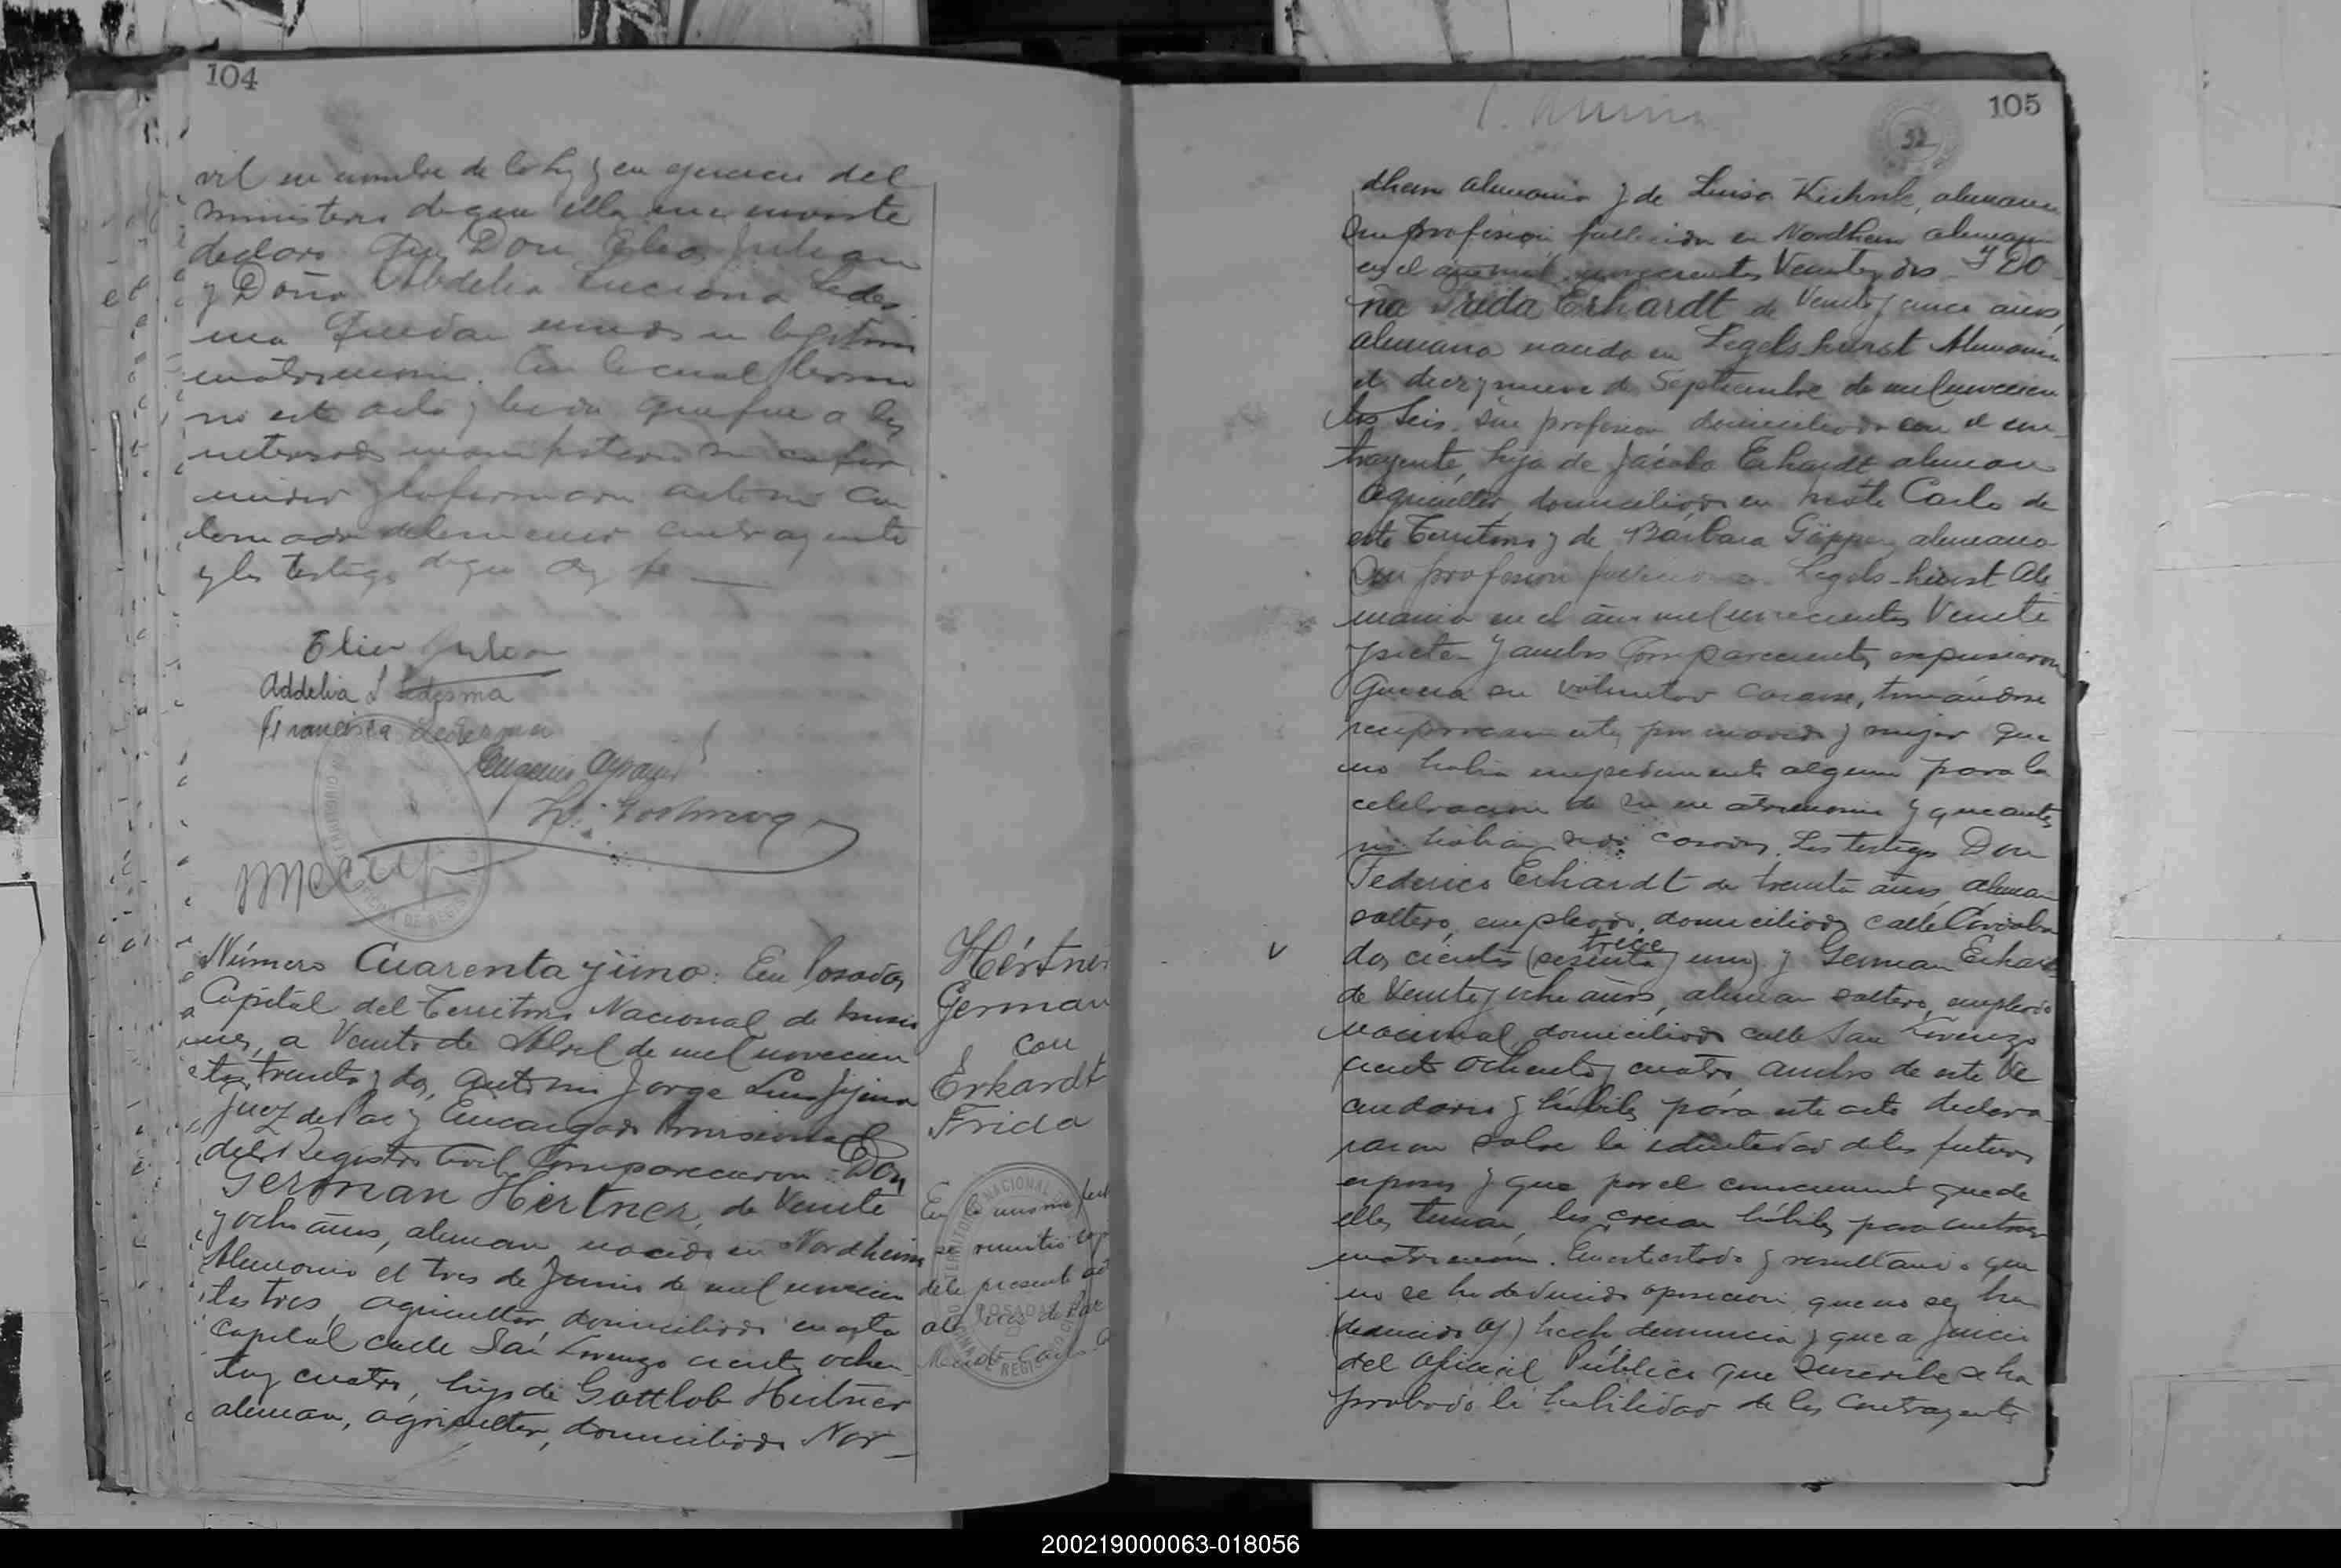 104
vil en nombre de la ley y en ejercicio del
ministerio de que ella me inviste
declaro Que Don Elias Julian
y Doña Abdelia Luciana Ledes
ma Quedan unidos en legitimo
matrimonio. Con lo cual termi
no este acto y leida que fue a los
interesados manifestaron su confor
midad y la firmaron ante mi con
la madre del menor contrayente
y los testigos de que doy fe
Addelia L Ledesma
Francisca Ledesma
Eugenio
Número Cuarenta y uno: En Posadas
Capital del Territorio Nacional de Misio
nes, a Veinte de Abril de mil novecien
tos treinta y dos, ante mi Jorge Luis
Juez de Paz y Encargado Provisional
del Registro Civil Comparecieron: Don
German Hertner, de Veinte
y ocho años, aleman nacido en Nordheim
Alemania el tres de Junio de mil novecien
tos tres, agricultor, domiciliado en esta
Capital calle San Lorenzo ciento ochen
ta y cuatro, hijo de Gottlob Hertner
aleman, agricultor, domiciliado Nor-
Hértner
German
con
Erkardt
Frida
En la misma fecha
se remitió copia
de la presente acta
al Juez de Paz
Monte Carlo
105
52
dheim Alemania y de Luisa alemana
Sin profesión fallecida en Nordheim alemania
en el año mil novecientos Veinte y dos - Y DO
ña Frida Erhardt de Veinte y cinco años,
alemana nacida en Legels-hurst Alemania
el diez y nueve de Septiembre de mil novecien
tos seis. sin profesion domiciliada con el con-
trayente, hija de Jácobo Erhardt aleman
agricultor, domiciliado en Monte Carlo de
este Territorio y de Bárbara Göpper, alemana
Sin profesion fallecida en Legels-hurst Ale
mania en el año mil novecientos Veinte
y siete - Y ambos Comparecientes expusieron
Que era su voluntad casarse, tomándose
reciprocamente por marido y mujer que
no habia impedimento alguno para la
celebracion de su matrimonio y que antes
no habian sido casados. Los testigos Don
Federico Erhardt de treinta años, aleman
soltero, empleado, domiciliado calle Córdoba
trece
dos cientos (sesenta y uno) y German Erhardt
de Veinte y ocho años, aleman soltero, empleado
nacional domiciliado calle San Lorenzo
ciento ochenta y cuatro ambos de este Ve
cindario y hábiles para este acto declara
raron sobre la identidad de los futuros
esposos y que por el conocimiento que de
ellos tenian, los creian hábiles para contraer
matrimonio. En este estado y resultando que
no se ha deducido oposicion que no se ha
(deducido of) hecho denuncia y que a juicio
del Oficial Público que suscribe se ha
probado la habilidad de los Contrayentes
200219000063-018056